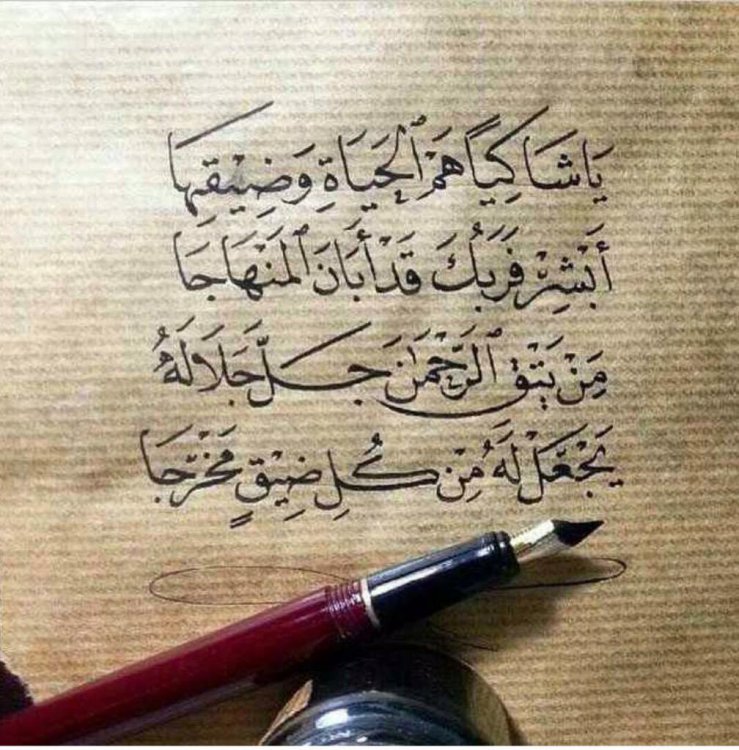 يَا شَاكِيًا هَمَّ ٱلْحَيَاةِ وَضِيقِهَا
أَبْشِرْ فَرَبُّكَ قَدْ أَبَانَ ٱلْمَنْهَاجَا
مَنْ يَتَّقِ ٱلرَّحْمَٰنَ جَلَّ جَلَالَهُ
يَجْعَلْ لَهُ مِنْ كُلِّ ضِيقٍ مَخْرَجَا